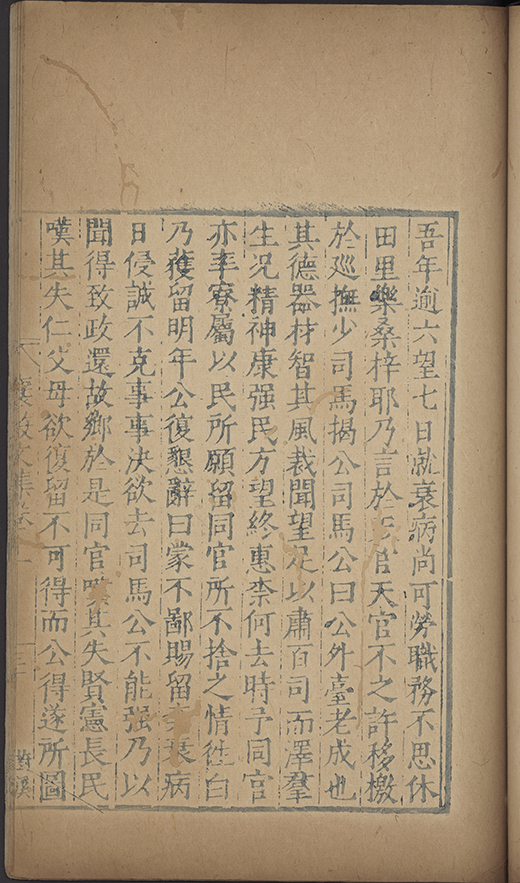 吾年逾六望七日就衰病尚可勞職務不思休
田里樂桑梓耶乃言於天官天官不之許移檄
於廵撫少司馬揭公司馬公曰公外臺老成也
其德器材智其風裁聞望足以肅百司而澤羣
生况精神康强民方望終惠柰何去時予同官
亦率寮屬以民所願留同官所不捨之情徃白
乃獲留明年公復懇辭曰蒙不鄙賜留衰病
日侵誠不克事事決欲去司馬公不能强乃以
聞得致政還故鄉於是同官嘆其失賢憲長民
嘆其失仁父母欲復留不可得而公得遂所圖